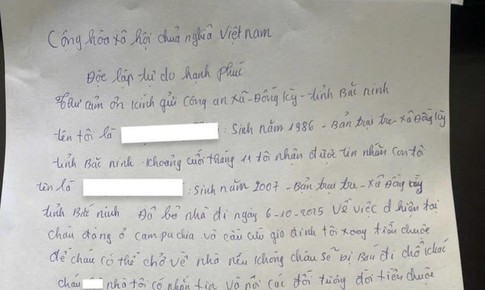 Cộng hòa xã hội chủ nghĩa Việt nam
Độc lập tự do hạnh phúc
Thư cảm ơn kính gửi công an xã - Đồng Kỳ - tỉnh Bắc ninh
tên tôi là : Sinh năm 1986 - Bản trại tre - xã Đồng Kỳ
tỉnh Bắc ninh. Khoảng cuối tháng 11 tô nhận được tin nhắn con tô
tên là : Sinh năm 2007 - Bản trại tre - xã Đồng Kỳ
tỉnh Bắc ninh Đã bỏ nhà đi ngày 6-10-2015 Về việc d hiện tại
cháu đang ở campuchia và cầu cứu gia đình tôi xoay tiền chuộc
để cháu có thể chở về nhà nếu không cháu sẽ bị Bán đi chỗ khác
cháu nhà tôi có nhắn tin và nói các đối tượng đòi tiền chuộc